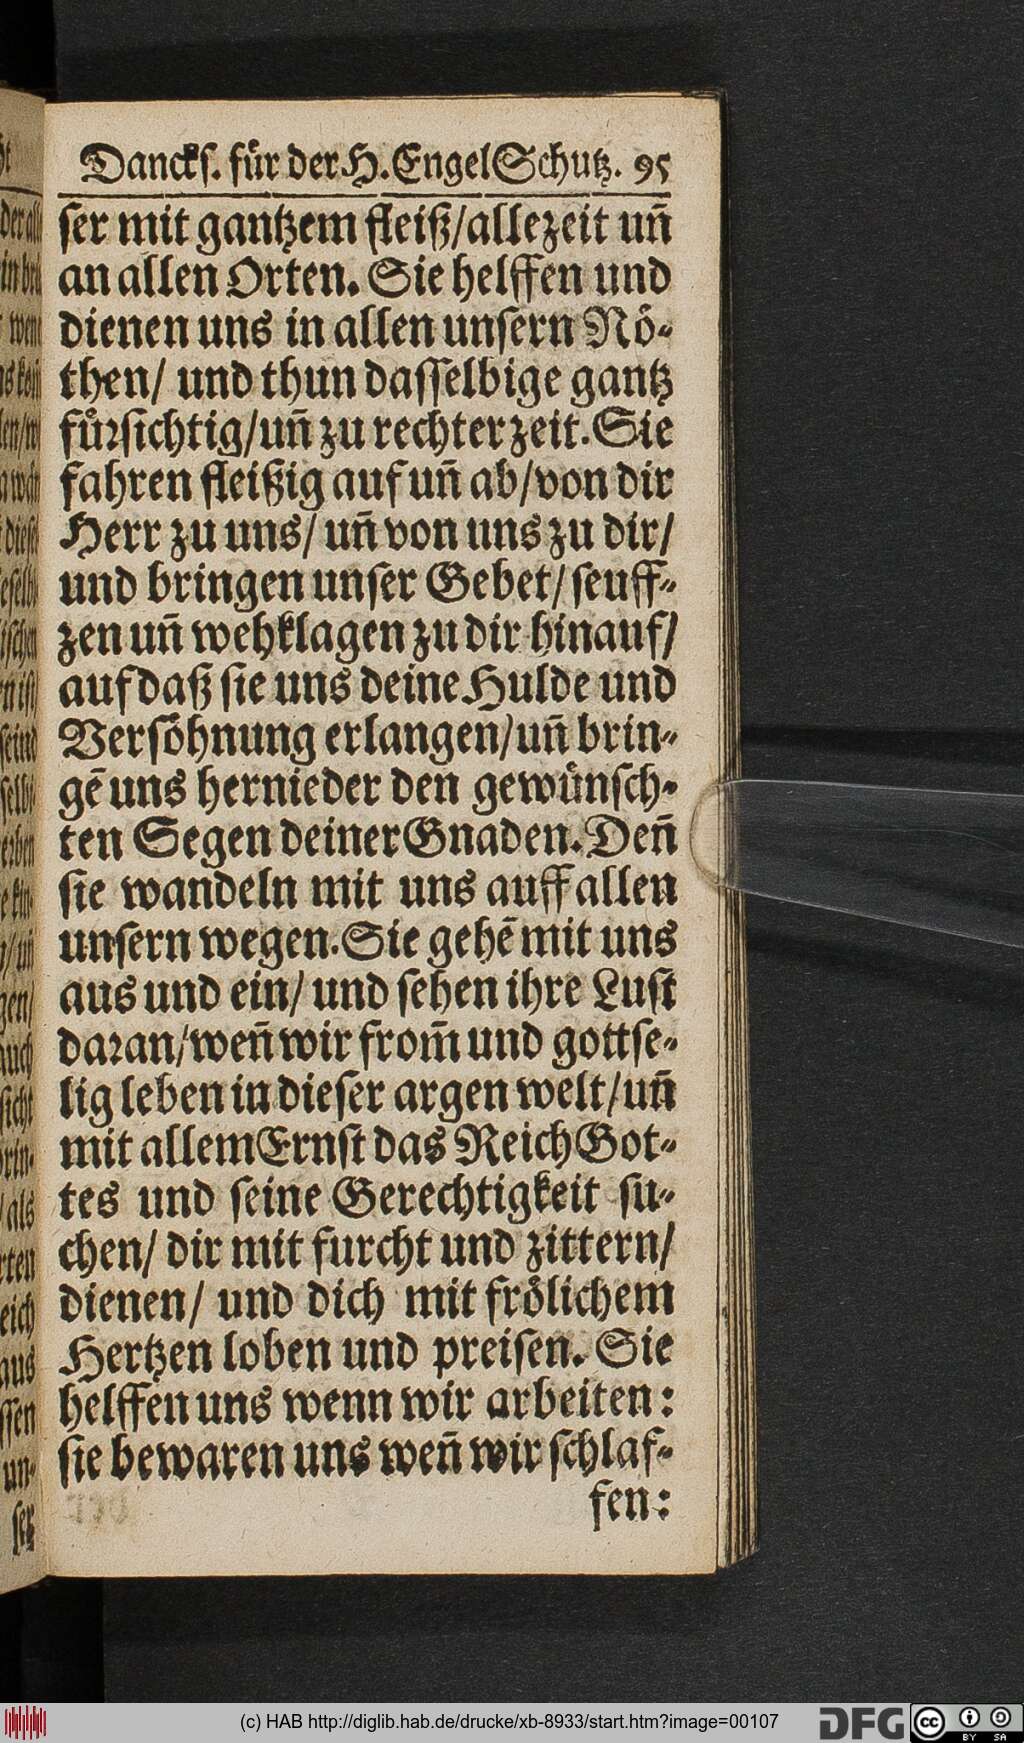 Dancks. für der H. Engel Schutz. 95
ser mit gantzem fleiß/allezeit uñ
an allen Orten. Sie helffen und
dienen uns in allen unsern Nö-
then/ und thun dasselbige gantz
fürsichtig/uñ zu rechter zeit. Sie
fahren fleißig auf uñ ab/von dir
Herr zu uns/ uñ von uns zu dir/
und bringen unser Gebet/ seuff-
zen uñ wehklagen zu dir hinauf/
auf daß sie uns deine Hulde und
Versöhnung erlangen/uñ brin-
gē uns hernieder den gewünsch-
ten Segen deiner Gnaden. Deñ
sie wandeln mit uns auff allen
unsern wegen. Sie gehē mit uns
aus und ein/ und sehen ihre Lust
daran/weñ wir from̄ und gottse-
lig leben in dieser argen welt/uñ
mit allem Ernst das Reich Got-
tes und seine Gerechtigkeit su-
chen/ dir mit furcht und zittern/
dienen/ und dich mit frölichem
Hertzen loben und preisen. Sie
helffen uns wenn wir arbeiten:
sie bewaren uns weñ wir schlaf-
fen:
(c) HAB http://diglib.hab.de/drucke/xb-8933/start.htm?image=00107
DFG
cc BY SA